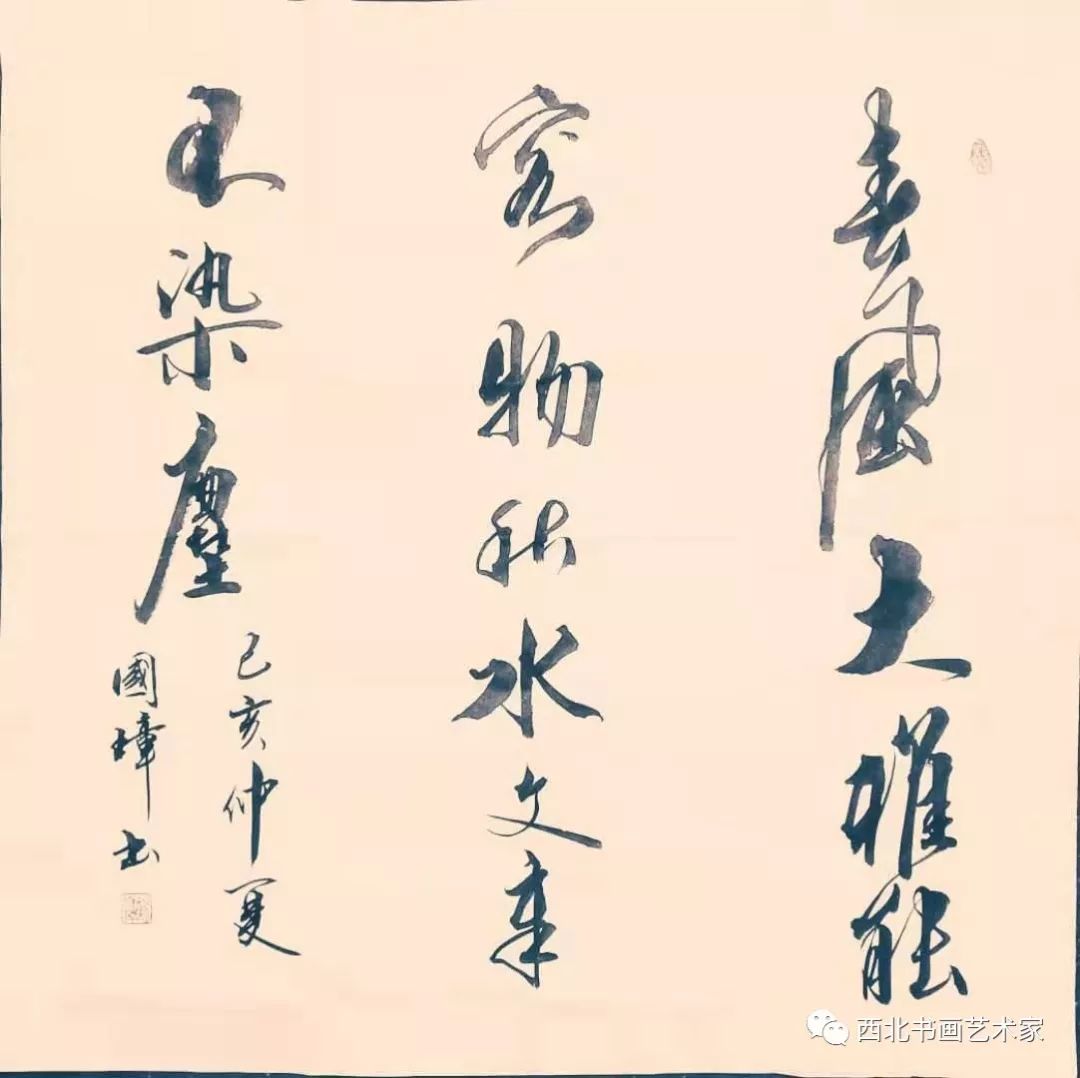 春風大雅能
容物秋水文章
不染塵
己亥仲夏
國璋书
西北书画艺术家